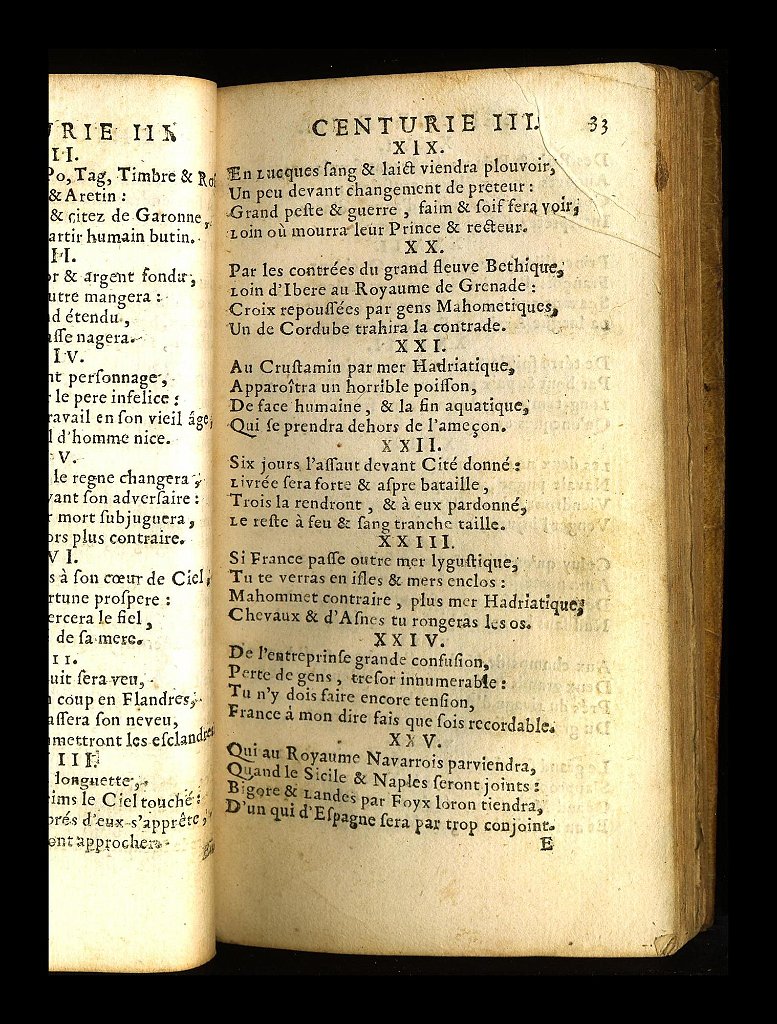 URIE III.
II.
Po, Tag, Timbre & Ro
& Aretin :
& citez de Garonne,
artir humain butin.
III.
or & argent fondu,
utre mangera :
nd étendu,
asse nagera.
IV.
nt personnage,
r le pere infelice :
ravail en son vieil âge,
l d'homme nice.
V.
le regne changera,
vant son adversaire :
r mort subjuguera,
ors plus contraire.
VI.
s à son cœur de Ciel,
rtune prospere :
ercera le fiel,
de sa mere.
II.
uit sera veu,
n coup en Flandres,
assera son neveu,
mettront les esclandres
III.
longuette,
ims le Ciel touché :
prés d'eux s'apprête,
ont approcher.
CENTURIE III. 33
XIX.
En Lucques sang & laict viendra plouvoir,
Un peu devant changement de preteur :
Grand peste & guerre, faim & soif fera voir,
Loin où mourra leur Prince & recteur.
XX.
Par les contrées du grand fleuve Bethique,
Loin d'Ibere au Royaume de Grenade :
Croix repoussées par gens Mahometiques,
Un de Cordube trahira la contrade.
XXI.
Au Crustamin par mer Hadriatique,
Apparoîtra un horrible poisson,
De face humaine, & la fin aquatique,
Qui se prendra dehors de l'ameçon.
XXII.
Six jours l'assaut devant Cité donné :
Livrée sera forte & aspre bataille,
Trois la rendront, & à eux pardonné,
Le reste à feu & sang tranche taille.
XXIII.
Si France passe outre mer lygustique,
Tu te verras en isles & mers enclos :
Mahommet contraire, plus mer Hadriatique,
Chevaux & d'Asnes tu rongeras les os.
XXIV.
De l'entreprinse grande confusion,
Perte de gens, tresor innumerable :
Tu n'y dois faire encore tension,
France à mon dire fais que sois recordable.
XXV.
Qui au Royaume Navarrois parviendra,
Quand le Sicile & Naples seront joints :
Bigore & Landes par Foyx loron tiendra,
D'un qui d'Espagne sera par trop conjoint.
E